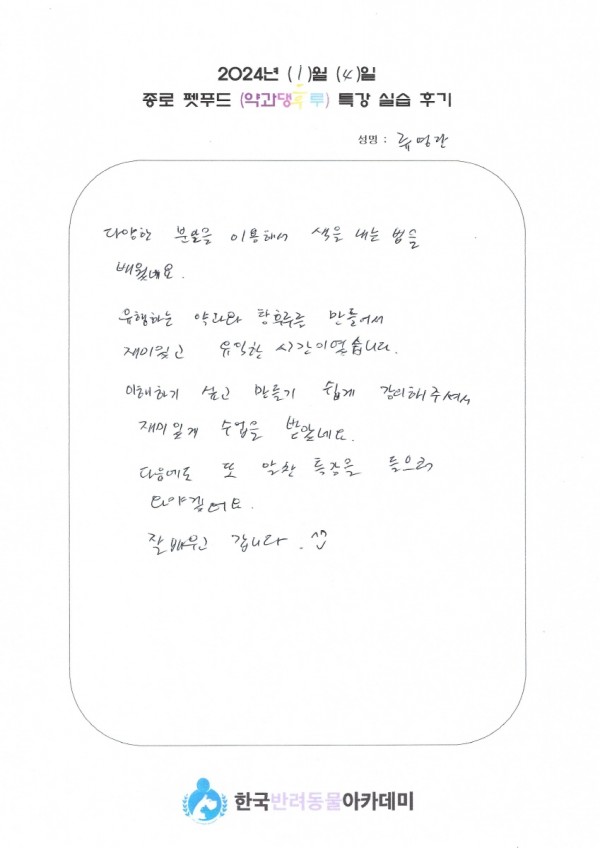 2024년 (1)월 (4)일
종로 펫푸드 (약과댕후루) 특강 실습 후기
성명 : 류영란
다양한 분말을 이용해서 색을 내는 법을
배웠네요.
유행하는 약과와 탕후루를 만들어서
재미있고 유익한 시간이였습니다.
이해하기 쉽고 만들기 쉽게 강의해주셔서
재미있게 수업을 받았네요.
다음에도 또 알찬 특강을 들으러
와야겠어요.
잘 배우고 갑니다. ^^
한국반려동물아카데미